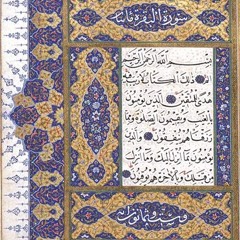 سورة البقرة مائتا
بسم الله الرحمن الرحيم
الم ذلك الكتاب لا ريب فيه
هدى للمتقين الذين يؤمنون
بالغيب ويقيمون الصلوة ومما
رزقناهم ينفقون والذين
يؤمنون بما انزل اليك وما انزل
من قبلك وبالآخرة هم يوقنون
وست وثمانون